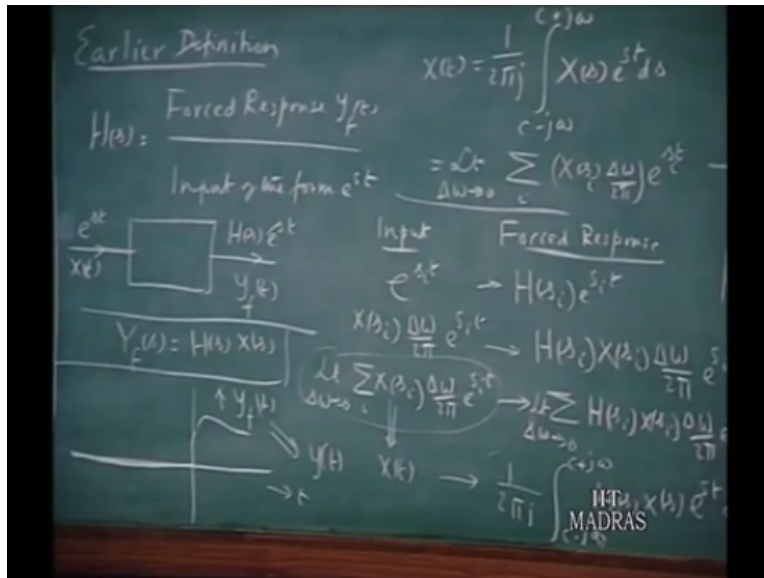 Earlier Definition
H(s) = Forced Response y_f(t)
Input of the form e^{st}
e^{st}
x(t)
H(s) e^{st}
y_f(t)
Y_f(s) = H(s) X(s)
↑ y_f(t)
→ t
y(t)
x(t) = \frac{1}{2πj} \int_{c-jω}^{c+jω} X(s) e^{st} ds
= Lt_{Δω→0} \sum_i (X(s_i) \frac{Δω}{2π}) e^{s_i t}
Input Forced Response
e^{s_i t} → H(s_i) e^{s_i t}
X(s_i) \frac{Δω}{2π} e^{s_i t} → H(s_i) X(s_i) \frac{Δω}{2π} e^{s_i t}
Lt_{Δω→0} \sum_i X(s_i) \frac{Δω}{2π} e^{s_i t} → Lt_{Δω→0} \sum H(s_i) X(s_i) \frac{Δω}{2π}
x(t) → \frac{1}{2πj} \int_{c-jω}^{c+jω} X(s) e^{st}
IIT
MADRAS